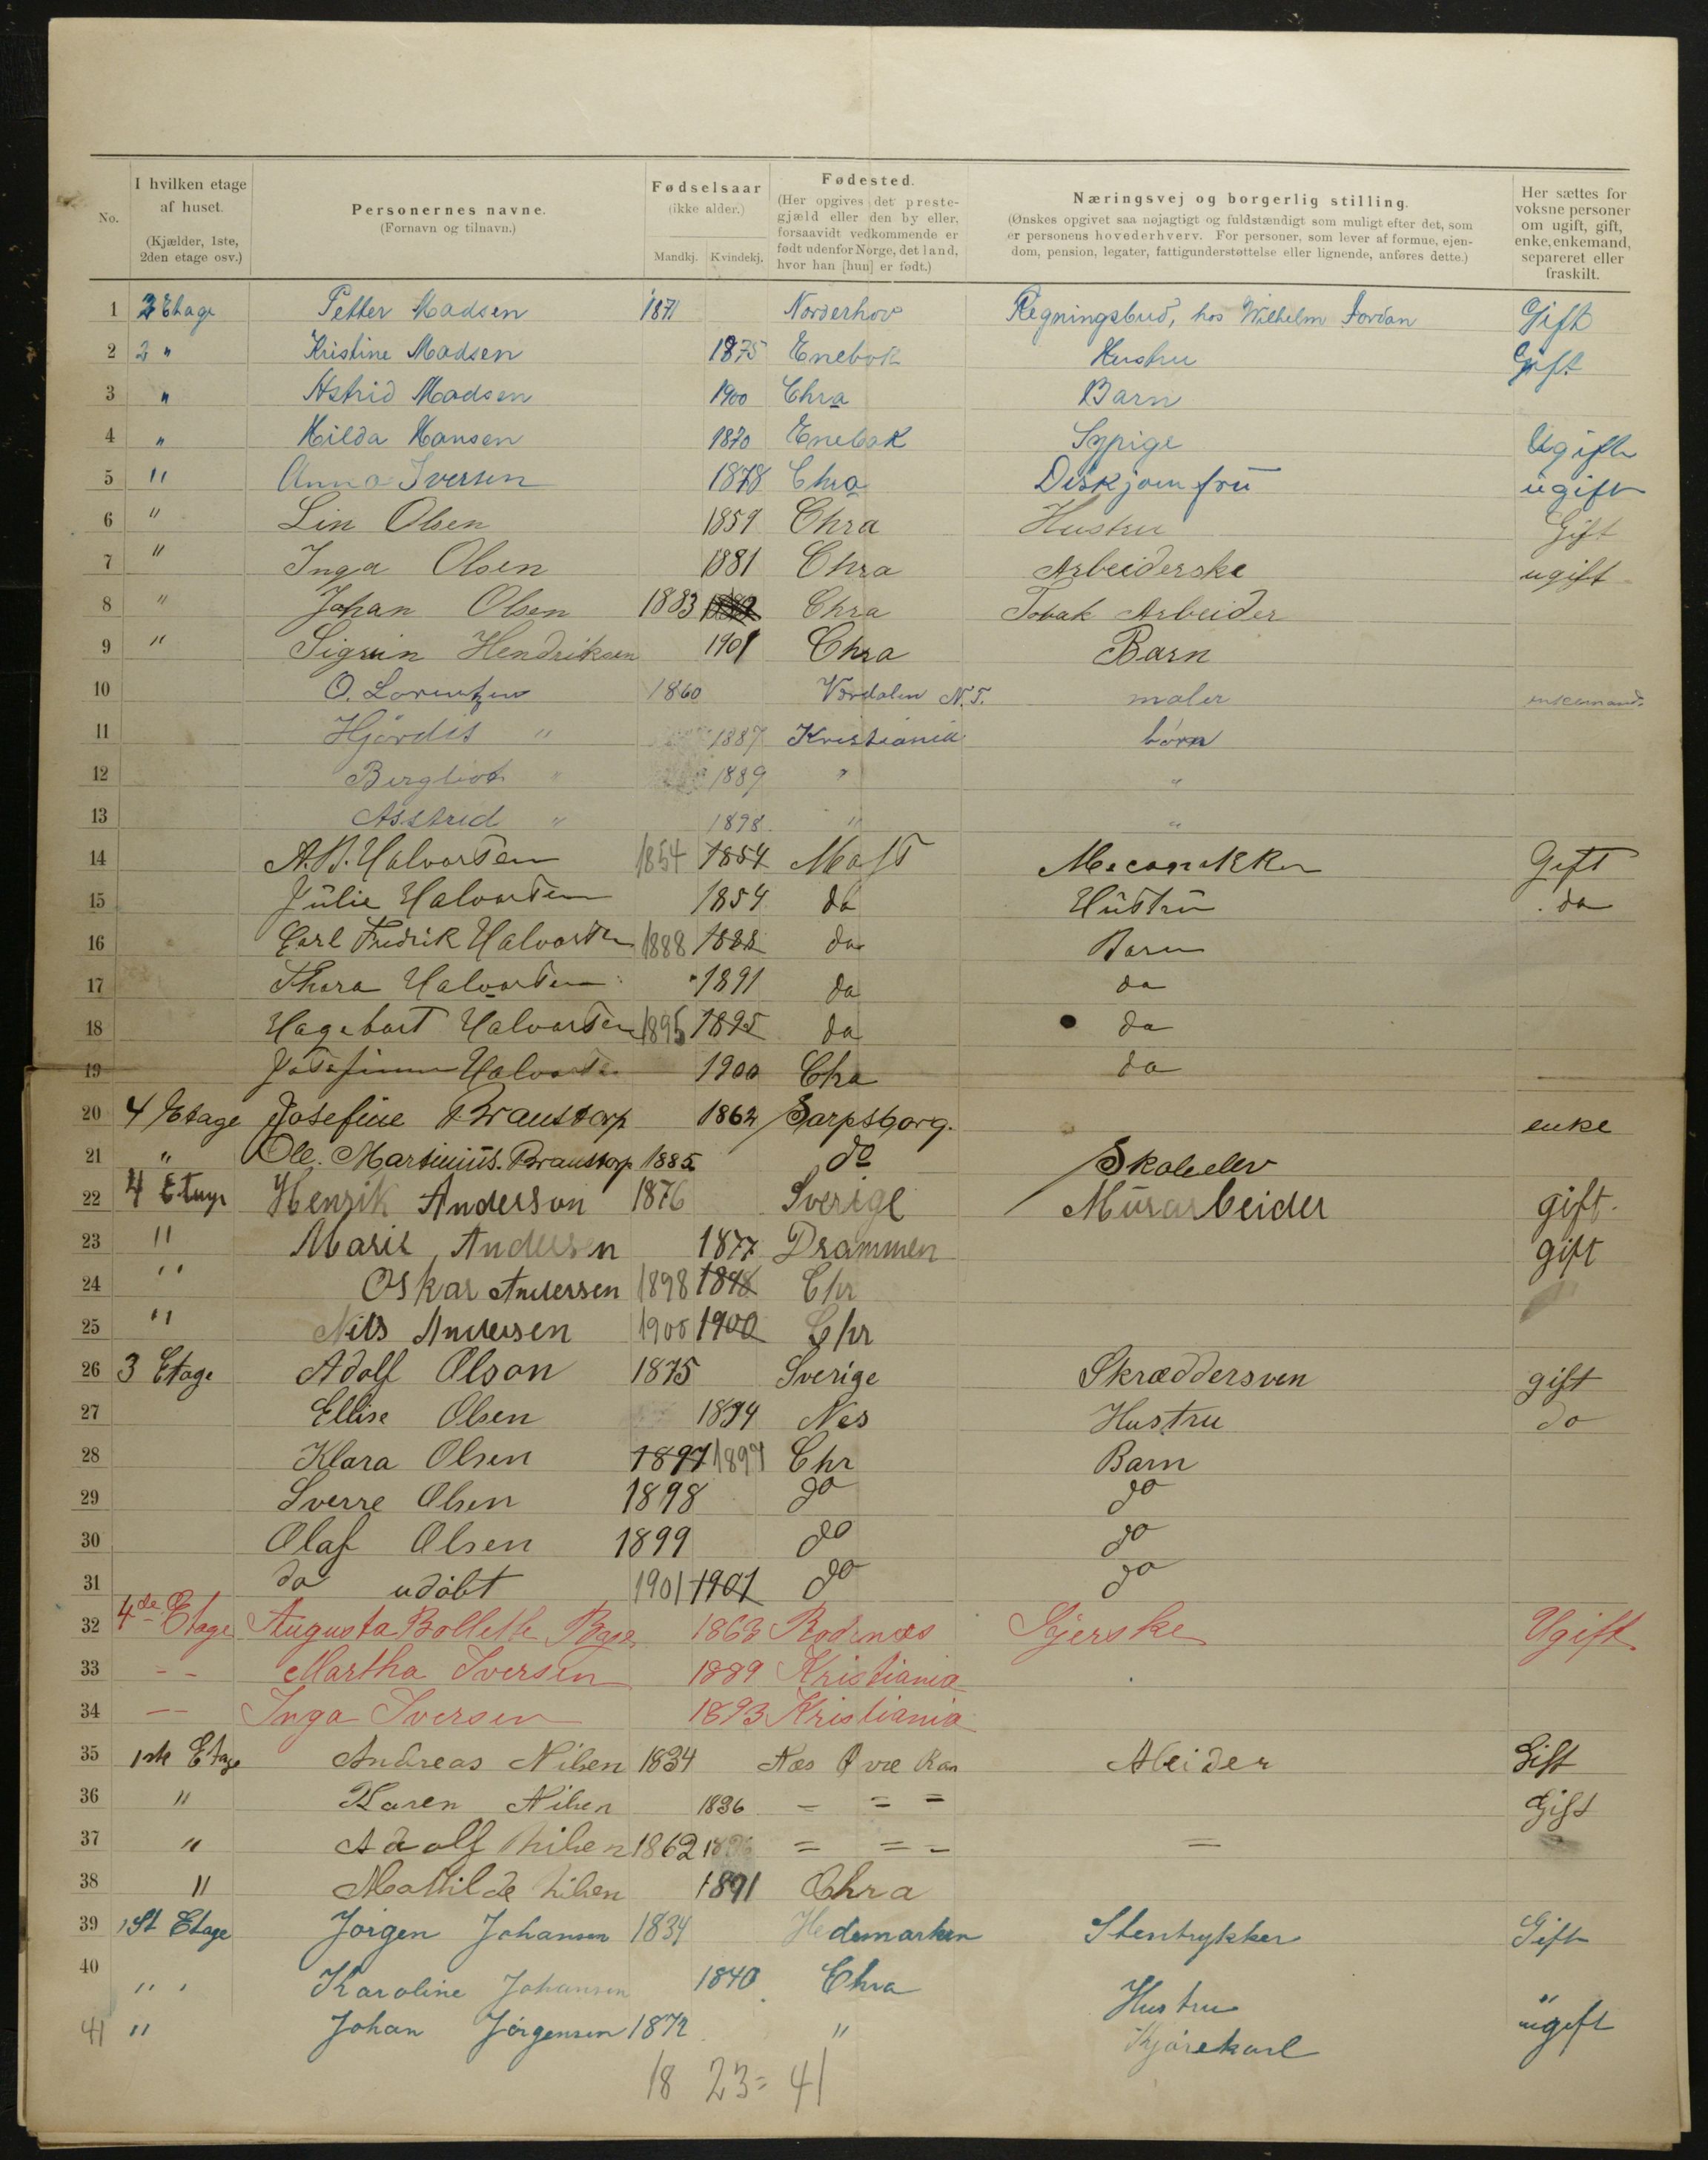 No.
I hvilken etage af huset. (Kjælder, 1ste, 2den etage osv.)
Personernes navne. (Fornavn og tilnavn.)
Fødselsaar (ikke alder.) Mandkj. Kvindekj.
Fødested. (Her opgives det prestegjæld eller den by eller, forsaavidt vedkommende er født udenfor Norge, det land, hvor han [hun] er født.)
Næringsvej og borgerlig stilling. (Ønskes opgivet saa nøjagtigt og fuldstændigt som muligt efter det, som er personens hovederhverv. For personer, som lever af formue, ejendom, pension, legater, fattigunderstøttelse eller lignende, anføres dette.)
Her sættes for voksne personer om ugift, gift, enke, enkemand, separeret eller fraskilt.
1 2 Etage Petter Madsen 1871 Norderhov Regningsbud, hos Wilhelm Jordan Gift
2 2 " Kristine Madsen 1875 Enebak Hustru Gift
3 " Astrid Madsen 1900 Chra Barn
4 " Hilda Hansen 1870 Enebak Sypige Ugift
5 " Anna Iversen 1878 Chra Diskjomfru ugift
6 " Lin Olsen 1859 Chra Hustru Gift
7 " Inga Olsen 1881 Chra Arbeiderske ugift
8 " Johan Olsen 1883 Chra Tobak Arbeider
9 " Sigrun Hendriksen 1901 Chra Barn
10 O. Lorentzen 1860 Værdalen N.T. maler enkemand
11 Hjördis " 1887 Kristiania børn
12 Bergliot " 1889 " "
13 Asstrid " 1898 " "
14 A.B. Halvorsen 1854 1854 Moss Mecanikker Gift
15 Julie Halvorsen 1854 do Hustru do
16 Carl Fredrik Halvorsen 1888 1888 do Barn
17 Thora Halvorsen 1891 do do
18 Hagebart Halvorsen 1895 1895 do do
19 Josefinne Halvorsen 1900 Chra do
20 4 Etage Josefine Braustorp 1862 Sarpsborg. enke
21 " Ole. Martinius. Braustorp 1885 do Skoleelev
22 4 Etage Henrik Anderson 1876 Sverige Murarbeider gift.
23 " Marie Andersen 1877 Drammen gift
24 " Oskar Andersen 1898 1898 Chr
25 " Nils Andersen 1900 1900 Chr
26 3 Etage Adolf Olson 1875 Sverige Skræddersven gift
27 Ellise Olsen 1874 Nes Hustru do
28 Klara Olsen 1897 1897 Chr Barn
29 Sverre Olsen 1898 do do
30 Olaf Olsen 1899 do do
31 do udöbt 1901 1901 do do
32 4de Etage Augusta Bollette 1863 Rodenæs Syerske Ugift
33 - - Martha Iversen 1889 Kristiania
34 - - Inga Iversen 1893 Kristiania
35 1ste Etage Andreas Nilsen 1834 Næs Øvre Rom Abeider Gift
36 " Karen Nilsen 1836 - = = Gift
37 " Adolf Nilsen 1862 = = - =
38 " Mathilde Nilsen 1891 Chra
39 1st Etage Jørgen Johansen 1834 Hedemarken Stentrykker Gift
40 " " Karoline Johansen 1840 Chra Hustru "
41 " Johan Jørgensen 1872 " Kjørekarl ugift
18 23 = 41